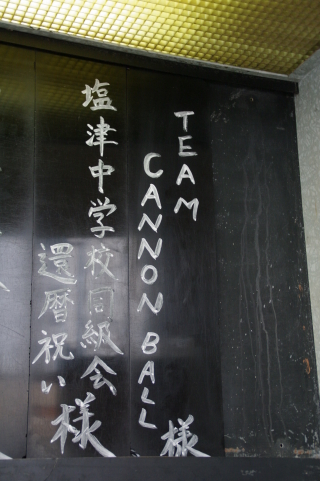 TEAM
CANNON BALL 様
塩津中学校同級会
還暦祝い 様